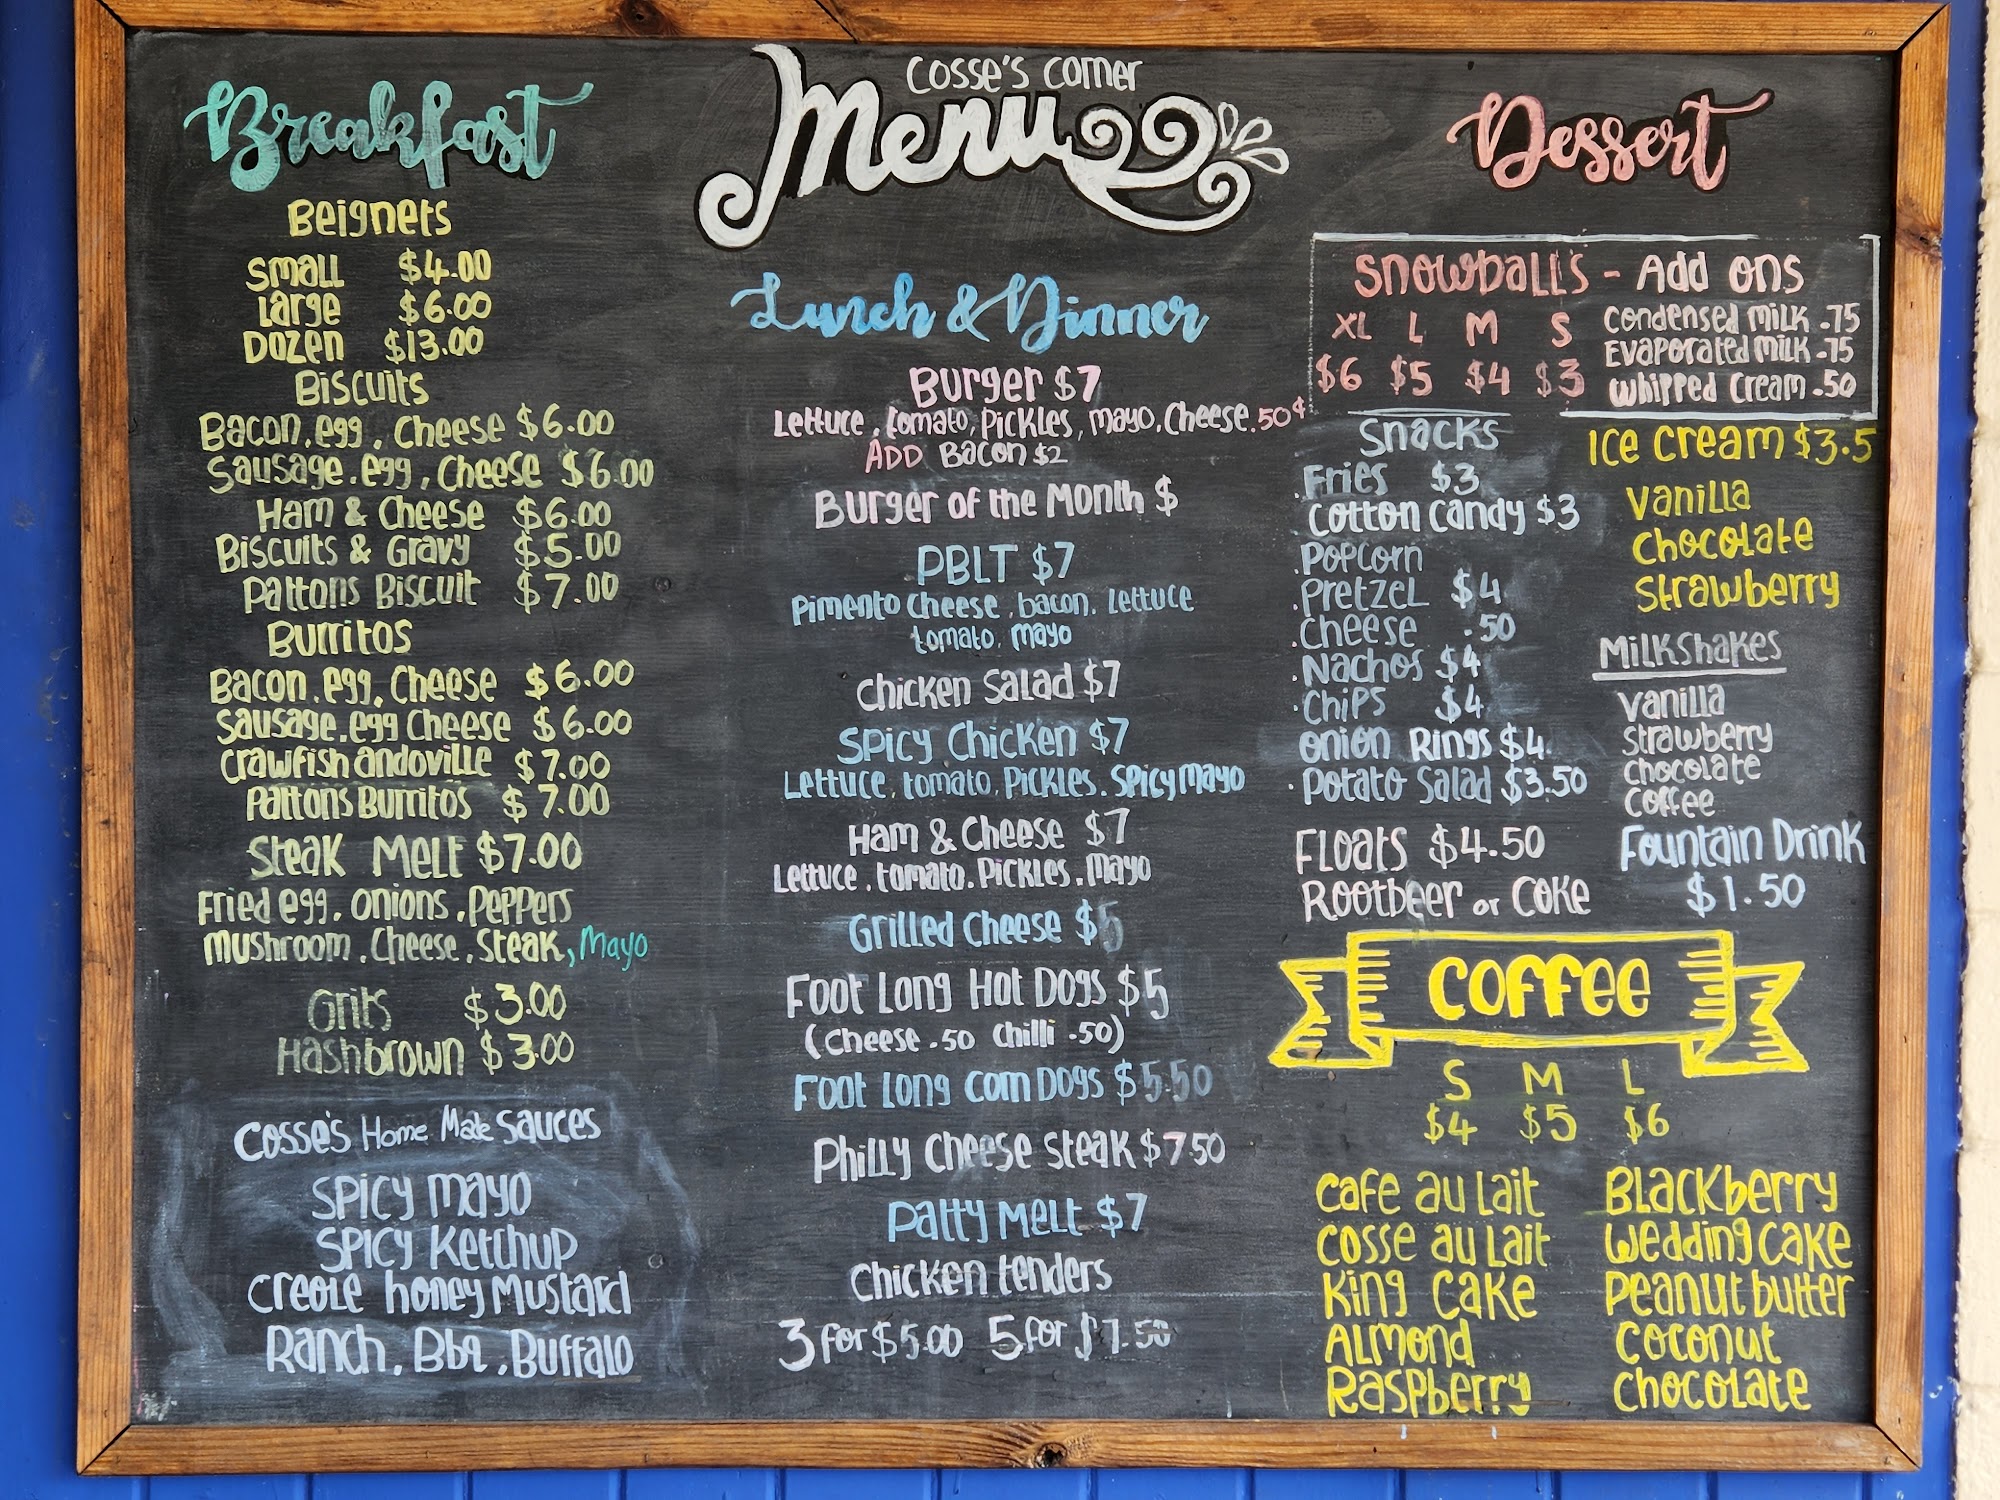 Cosse's Corner
Menu
Breakfast
Beignets
Small $4.00
Large $6.00
Dozen $13.00
Biscuits
Bacon, egg, Cheese $6.00
Sausage, egg, Cheese $6.00
Ham & Cheese $6.00
Biscuits & Gravy $5.00
Pattons Biscuit $7.00
Burritos
Bacon, egg, Cheese $6.00
Sausage, egg Cheese $6.00
Crawfish andoville $7.00
Pattons Burritos $7.00
Steak Melt $7.00
Fried egg, onions, Peppers
Mushroom, Cheese, Steak, Mayo
Grits $3.00
Hashbrown $3.00
Cosse's Home Made Sauces
Spicy Mayo
Spicy Ketchup
Creole honey Mustard
Ranch, Bbq, Buffalo
Lunch & Dinner
Burger $7
Lettuce, tomato, Pickles, Mayo, Cheese .50¢
ADD Bacon $2
Burger of the Month $
PBLT $7
Pimento Cheese, bacon, Lettuce
tomato, Mayo
Chicken Salad $7
Spicy Chicken $7
Lettuce, tomato, Pickles, Spicy Mayo
Ham & Cheese $7
Lettuce, tomato, Pickles, Mayo
Grilled Cheese $5
Foot Long Hot Dogs $5
(Cheese .50 Chilli .50)
Foot Long Corn Dogs $5.50
Philly Cheese Steak $7.50
Patty Melt $7
Chicken tenders
3 for $5.00 5 for $7.50
Dessert
Snowball's - Add ons
XL L M S
$6 $5 $4 $3
Condensed Milk .75
Evaporated Milk .75
Whipped Cream .50
Snacks
Fries $3
Cotton Candy $3
Popcorn
Pretzel $4
Cheese .50
Nachos $4
Chips $4
Onion Rings $4
Potato Salad $3.50
Floats $4.50
Rootbeer or Coke
Ice Cream $3.5
Vanilla
Chocolate
Strawberry
Milkshakes
Vanilla
Strawberry
Chocolate
Coffee
Fountain Drink
$1.50
Coffee
S M L
$4 $5 $6
Cafe au Lait
Cosse au Lait
King Cake
Almond
Raspberry
Blackberry
Wedding Cake
Peanut butter
Coconut
Chocolate